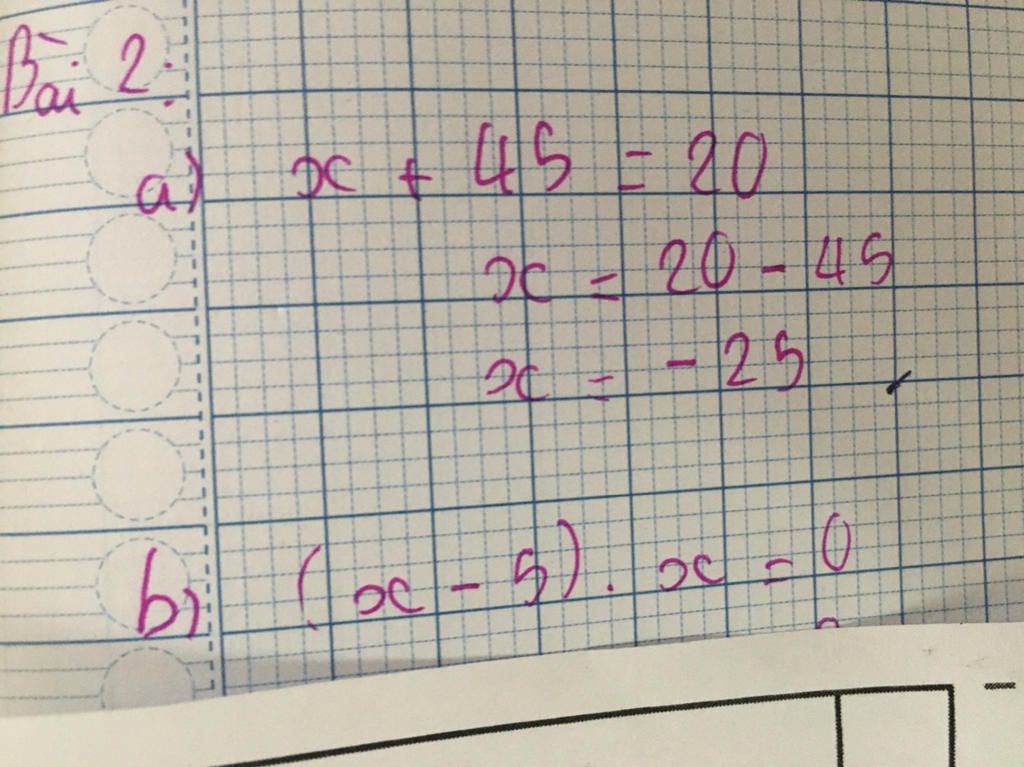 Bài 2:
a) x + 45 = 20
x = 20 - 45
x = - 25
b) (x - 5). x = 0